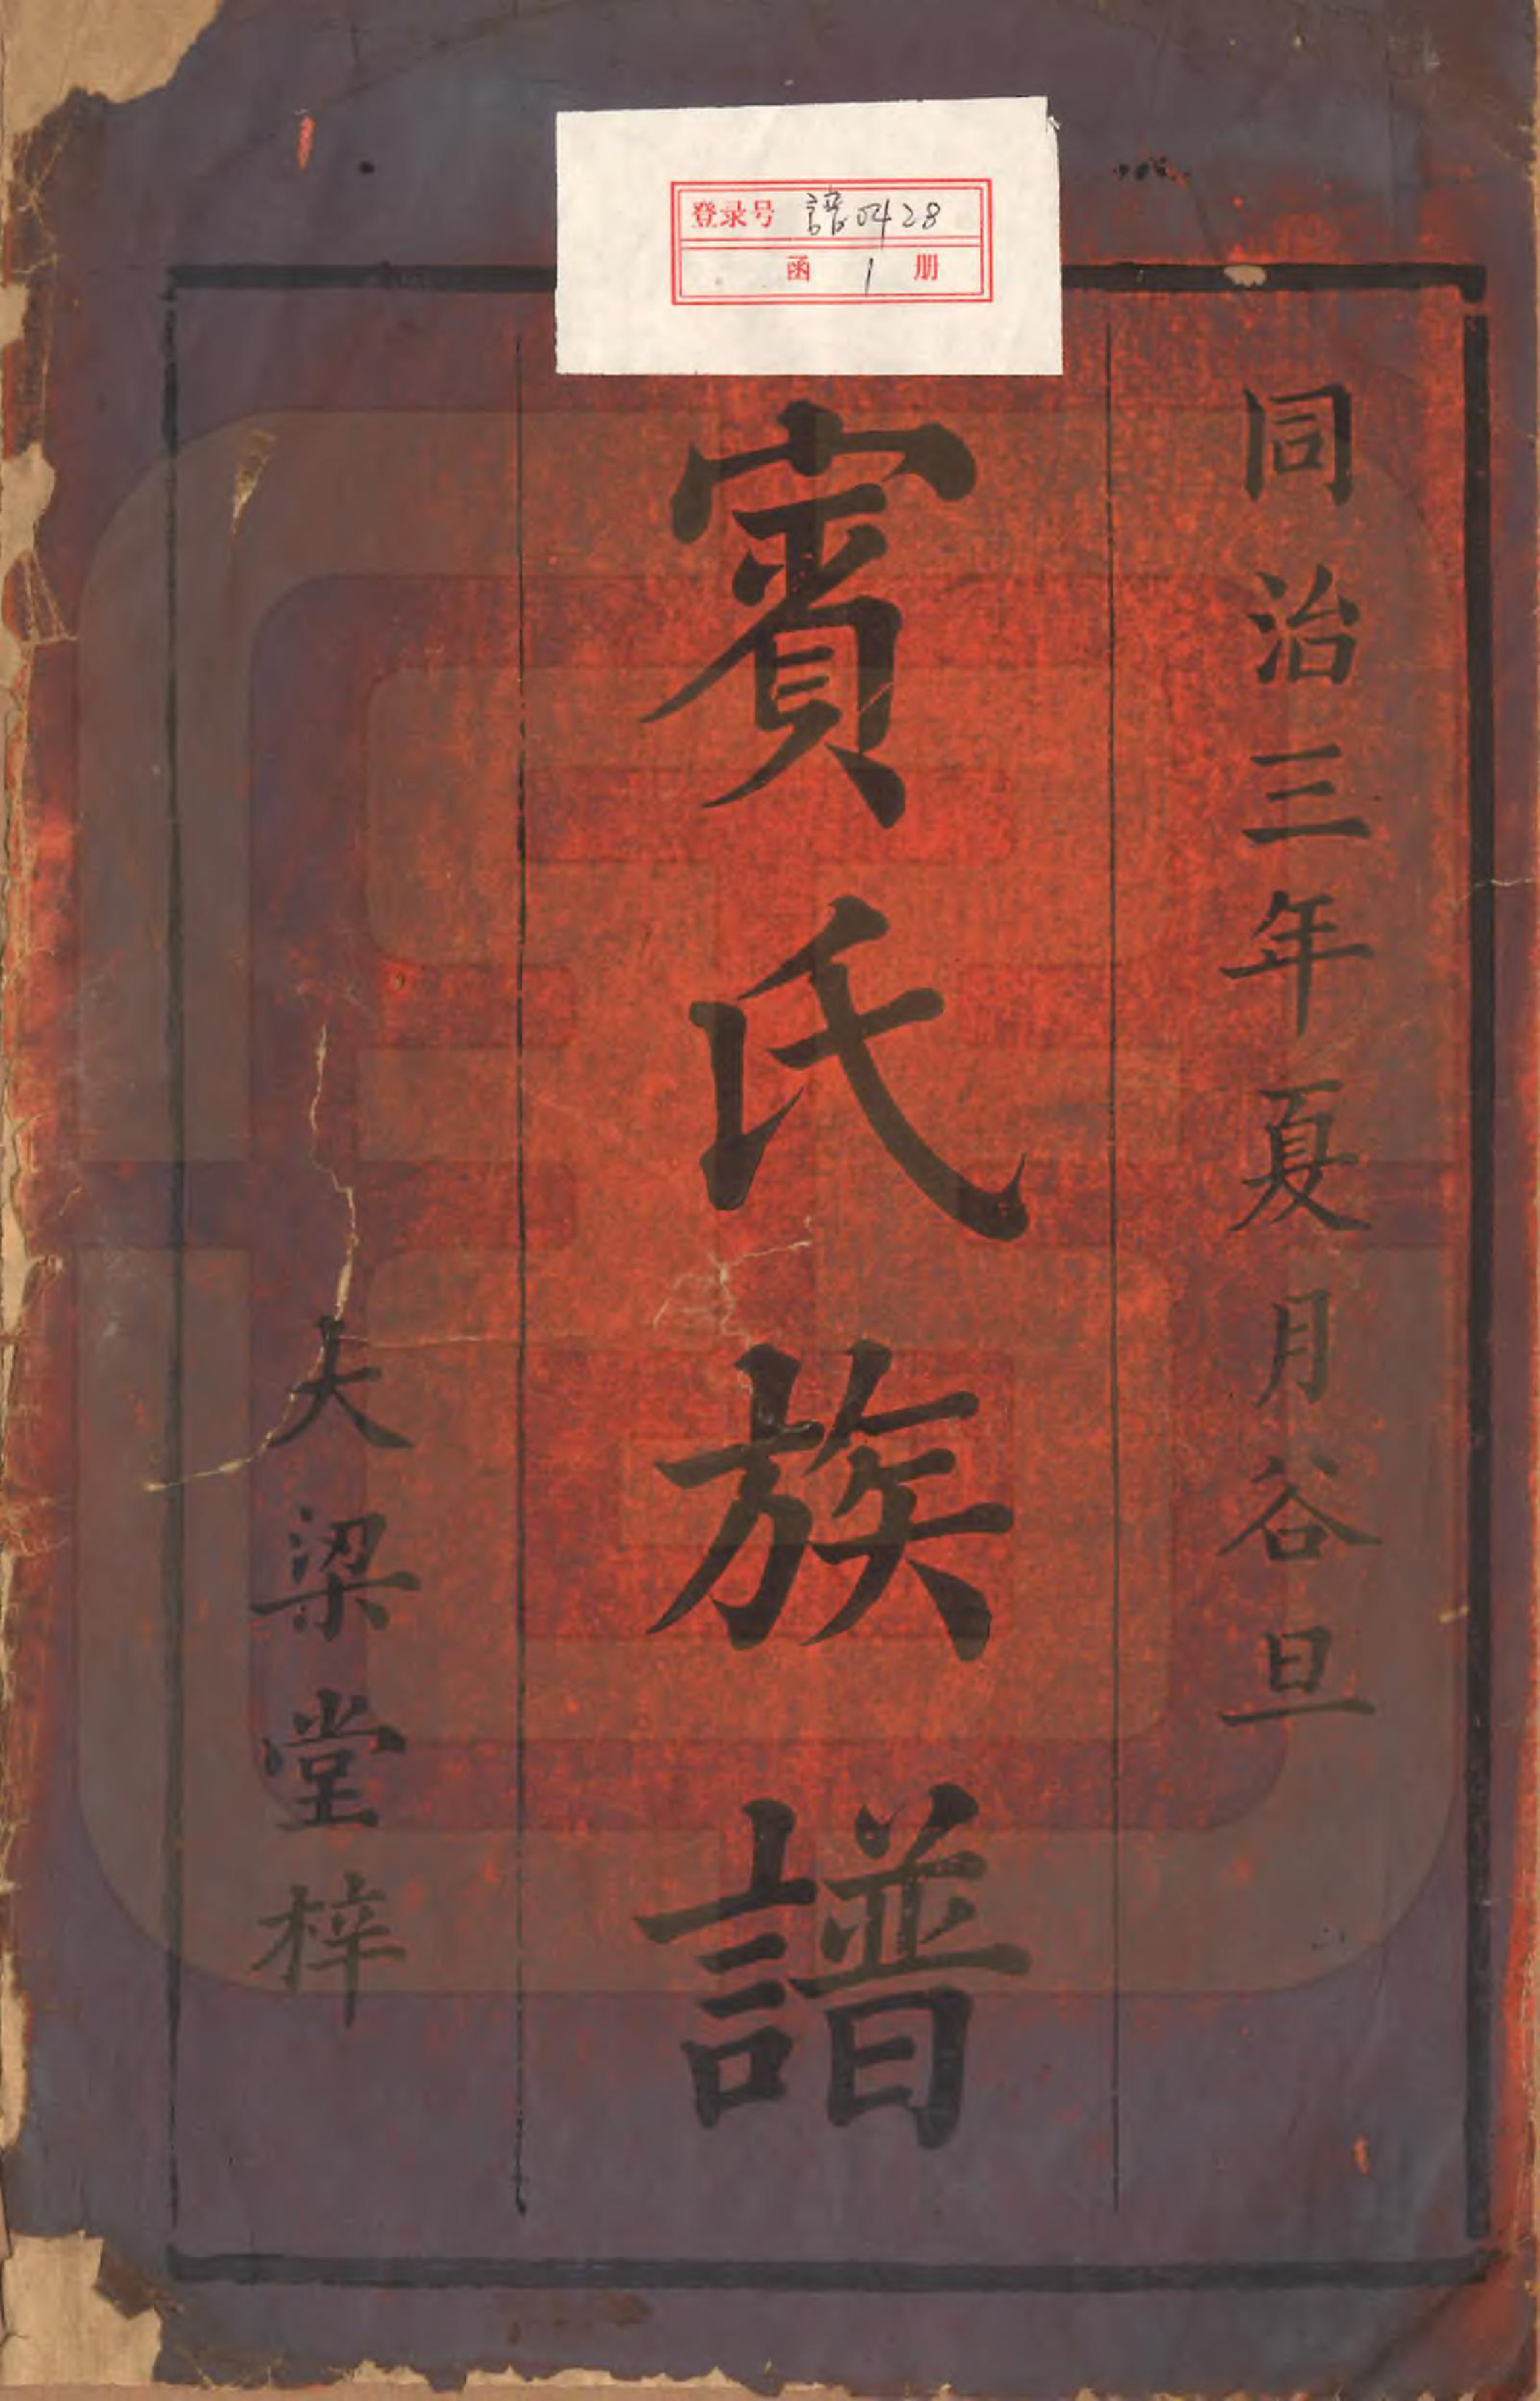 登录号 譜0428
函 1 册
同治三年夏月谷旦
賓氏族譜
大梁堂梓